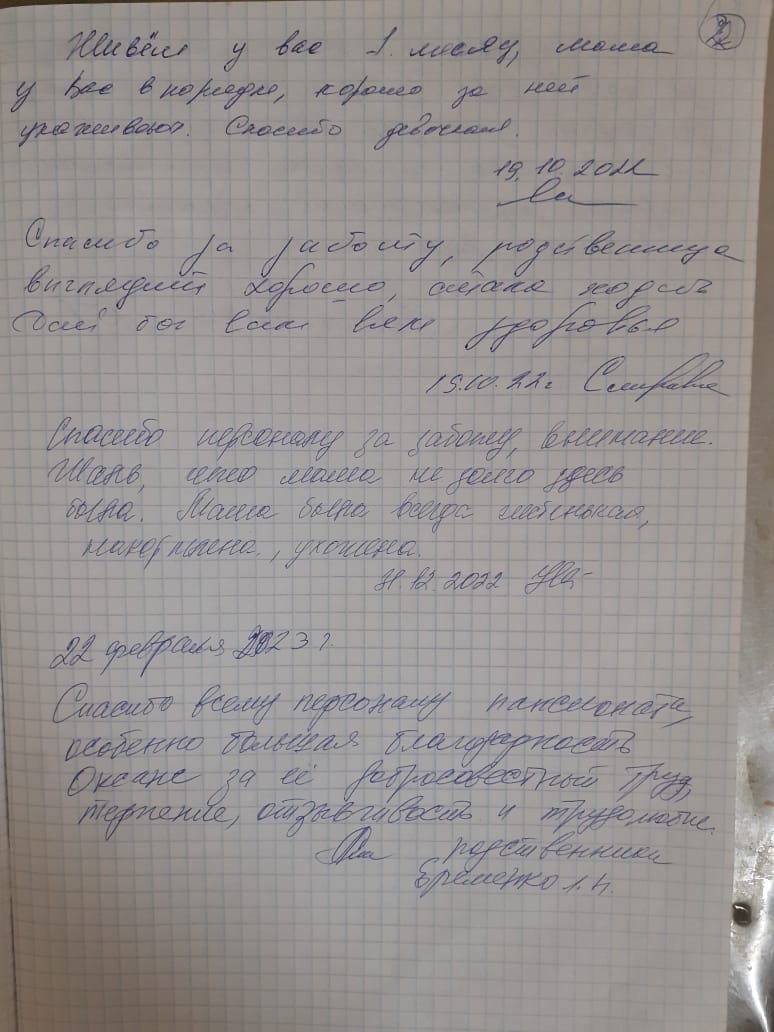 Живём у вас 1 месяц, мама
у Вас в порядке, хорошо за ней
ухаживают. Спасибо девочкам.
19.10.2022
Спасибо за заботу, родственница
выглядит хорошо, стала ходить
Дай бог вам всем здоровья
19.10.22г
Спасибо персоналу за заботу, внимание.
Жаль, что мама не долго здесь
была. Мама была всегда чистенькая,
накормлена, ухожена.
.12.2022
22 февраля 2023 г.
Спасибо всему персоналу пансионата,
особенно большая благодарность
Оксане за её добросовестный труд,
терпение, отзывчивость и трудолюбие.
родственники
Еременко